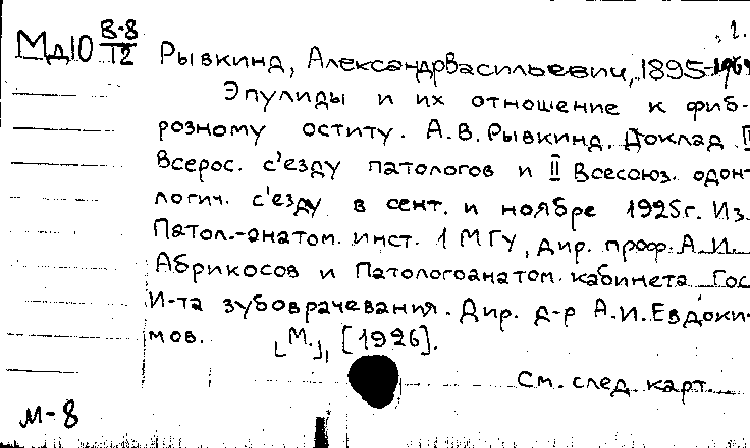 1.
Мд10 8-8/12
Рывкинд, Александр Васильевич, 1895-1969
Эпулиды и их отношение к фиб-
розному оститу. А.В. Рывкинд. Доклад I
Всерос. с'езду патологов и II Всесоюз. одонт
логич. с'езду в сент. и ноябре 1925г. Из
Патол.-анатом. инст. 1 МГУ, дир. проф. А.И.
Абрикосов и Патологоанатом. кабинета Гос
И-та зубоврачевания. Дир. д-р А.И. Евдоки-
мов. [М.], [1926].
См. след. карт.
м-8